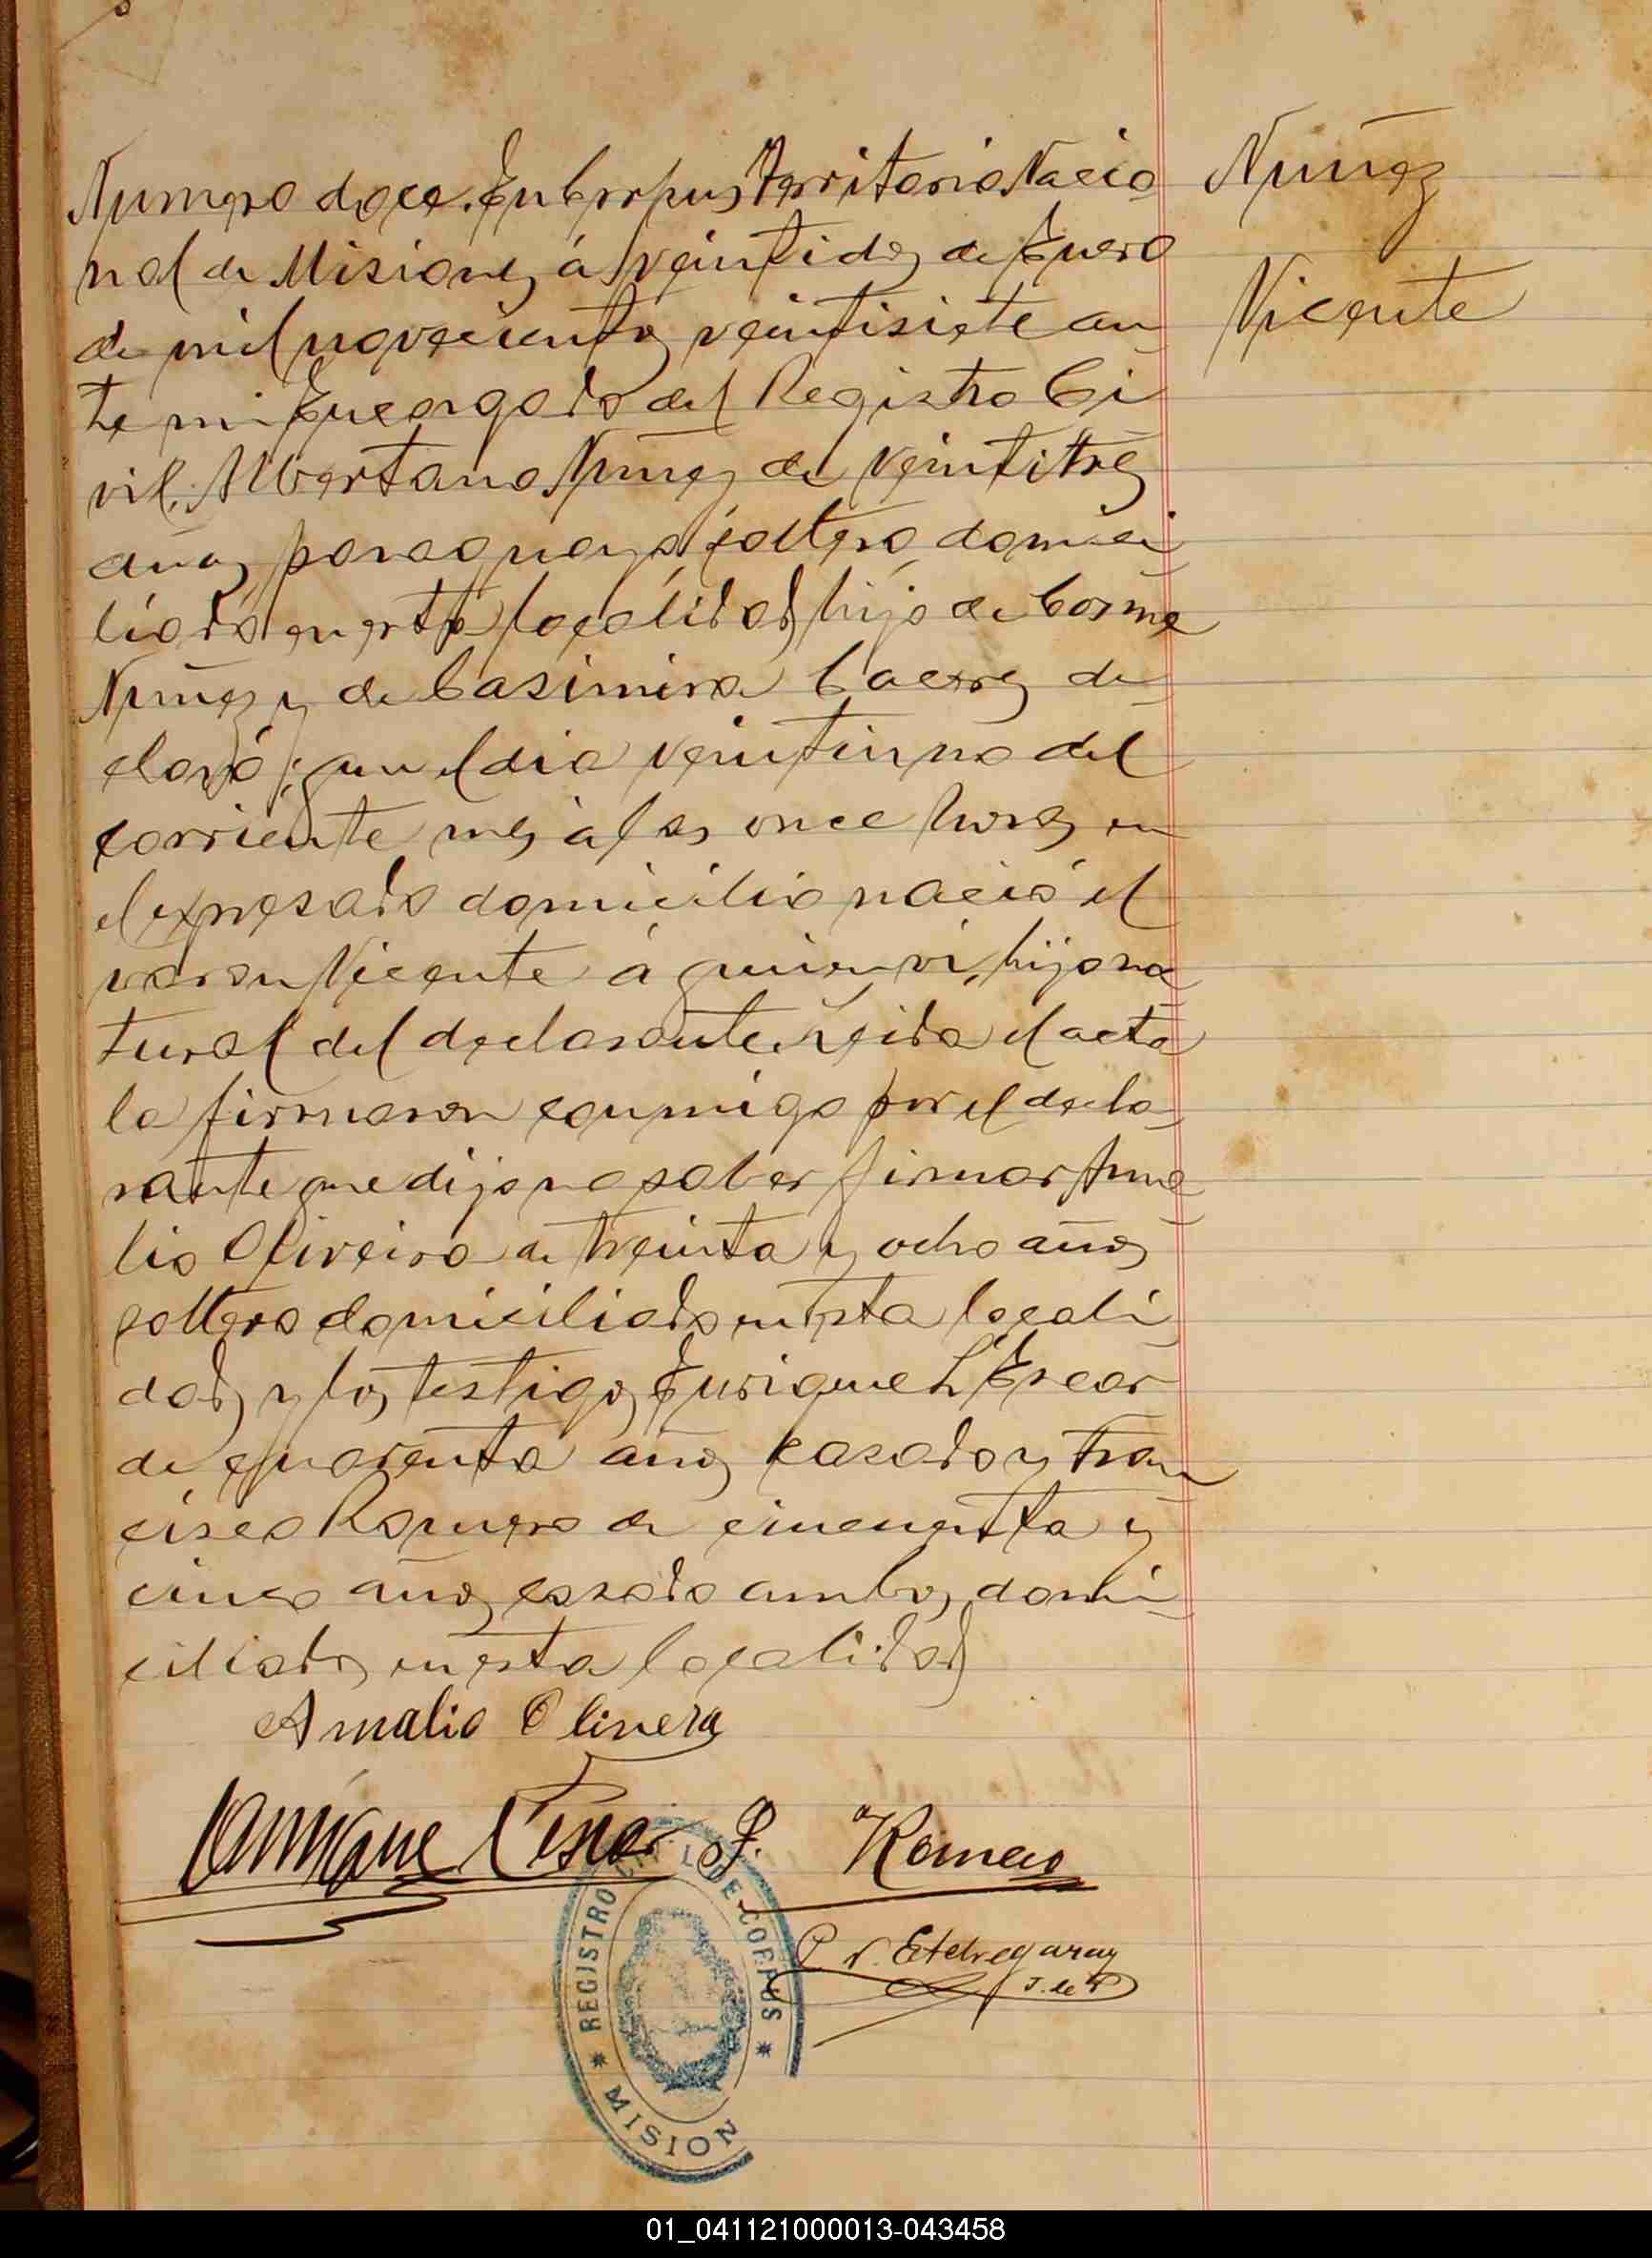 Nuñez
Vicente
Numero doce. En Corpus Territorio Nacio
nal de Misiones á veintidos de Enero
de mil novecientos veintisiete an
te mi Encargado del Registro Ci
vil. Albertano Nuñez de veintitres
años, paraguayo, soltero, domici
liado en esta localidad hijo de Cosme
Nuñez y de Casimira de
claró: que el dia veintiuno del
corriente mes a las once horas en
el expresado domicilio nació el
varon Vicente á quien vi, hijo na
tural del declarante. Leida el acta
la firmaron conmigo por el decla
rante que dijo no saber firmar Ama
lio Oliveira de treinta y ocho años
soltero domiciliado en esta locali
dad, y los testigos Enrique L'Escar
de cuarenta años casado y Fran
cisco Romero de cincuenta y
cinco años casado ambos domi
ciliados en esta localidad
Amalio Olivera
Enrique F. Romero
P. Etchegaray
J. de P
REGISTRO CIVIL DE CORPUS
* MISION *
01_041121000013-043458